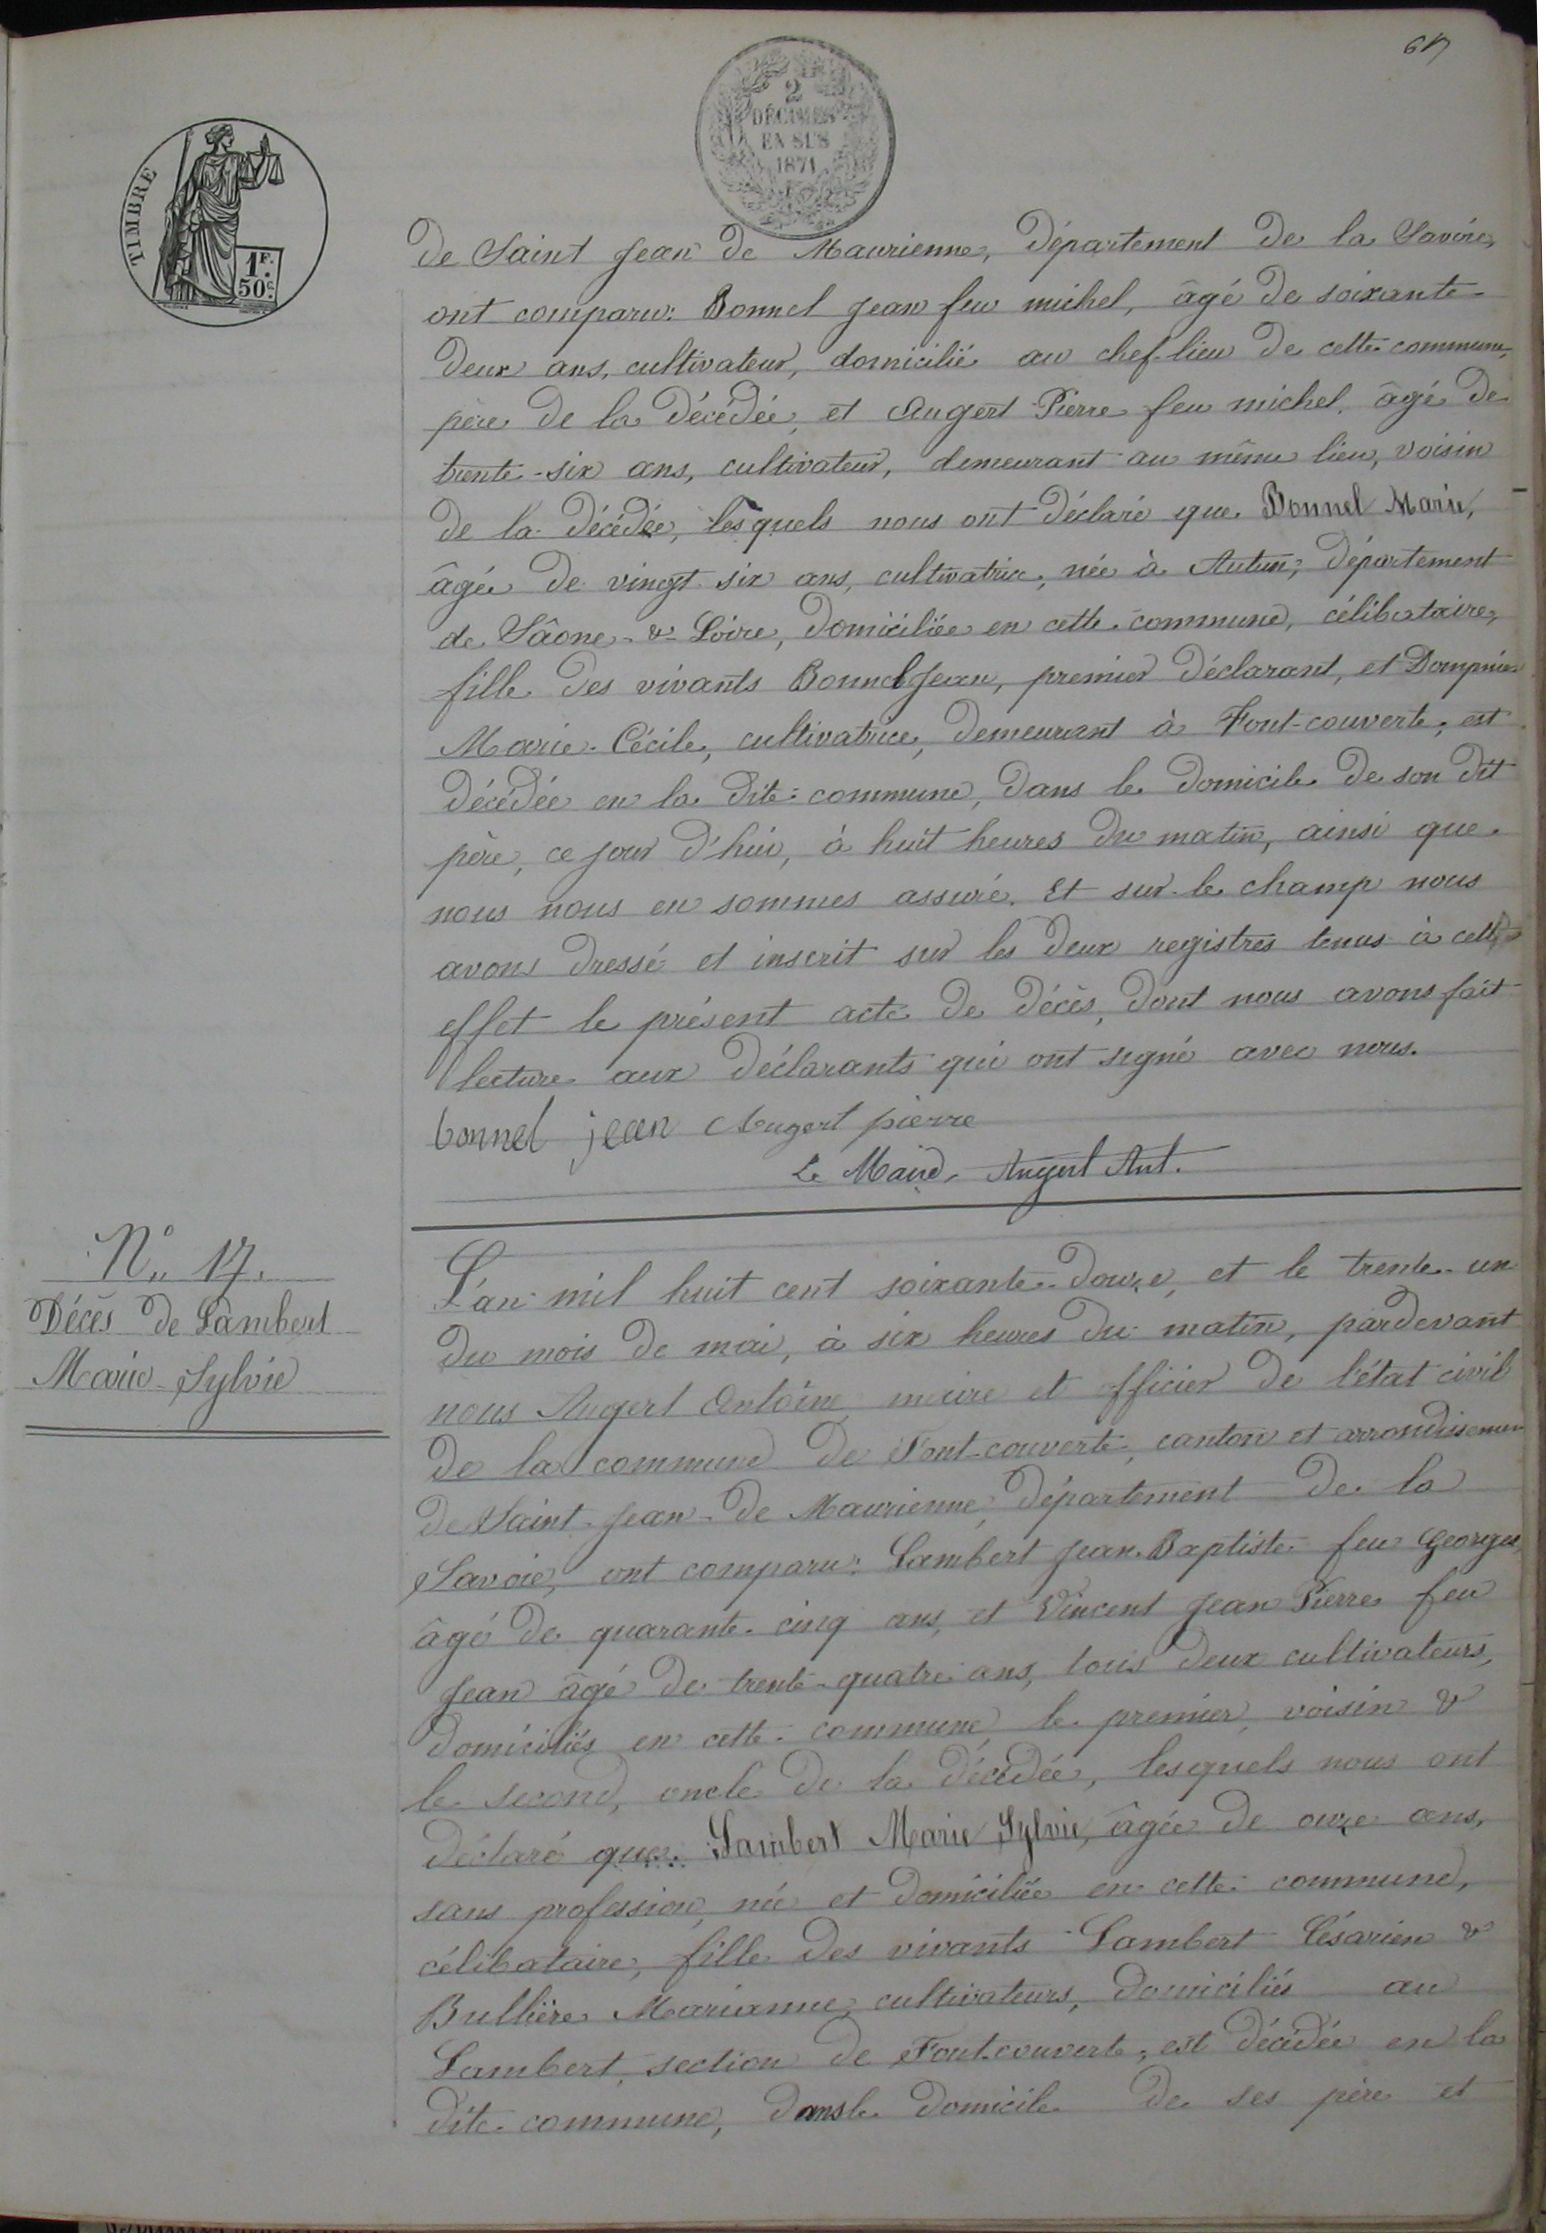 2
DÉCIMES
EN SUS
1871
TIMBRE
1F.
50c
de Saint Jean de Maurienne, département de la Savoie,
ont comparu: Bonnel Jean feu michel, âgé de soixante-
deux ans, cultivateur, domicilié au chef-lieu de cette commune,
père de la décédée, et Augert Pierre feu michel, âgé de
trente-six ans, cultivateur, demeurant au même lieu, voisin
de la décédée, lesquels nous ont déclaré que Bonnel Marie,
âgée de vingt six ans, cultivatrice, née à Autun, département
de Sâone-&-Loire, domiciliée en cette commune, célibataire,
fille des vivants Bonnel Jean, premier déclarant, et Dompnier
Marie-Cécile, cultivatrice, demeurant à Font-couverte, est
décédée en la dite commune, dans le domicile de son dit
père, ce jour d'hui, à huit heures du matin, ainsi que
nous nous en sommes assuré. Et sur-le champ nous
avons dressé et inscrit sur les deux registres tenus à cette
effet le présent acte de décès, dont nous avons fait
lecture aux déclarants qui ont signé avec nous.
bonnel jean Augert pierre
Le Maire, Augert Ant.
N° 17.
Décès de Lambert
Marie Sylvie
L'an mil huit cent soixante-douze, et le trente-un
du mois de mai, à six heures du matin, pardevant
nous Augert Antoine maire et officier de l'état civil
de la commune de Font-couverte, canton et arrondissement
de Saint-Jean-de Maurienne, département de la
Savoie, ont comparu: Lambert Jean-Baptiste feu Georges,
âgé de quarante-cinq ans, et Vincent Jean Pierre feu
Jean âgé de trente-quatre ans, tous deux cultivateurs,
domiciliés en cette commune, le premier, voisin &
le second, oncle de la décédée, lesquels nous ont
déclaré que Lambert Marie Sylvie, âgée de onze ans,
sans profession, née et domiciliée en cette commune,
célibataire, fille des vivants Lambert Césarien &
Bullière Marianne, cultivateurs, domiciliés au
Lambert, section de Font-couverte, est décédée en la
dite commune, dans le domicile de ses père et